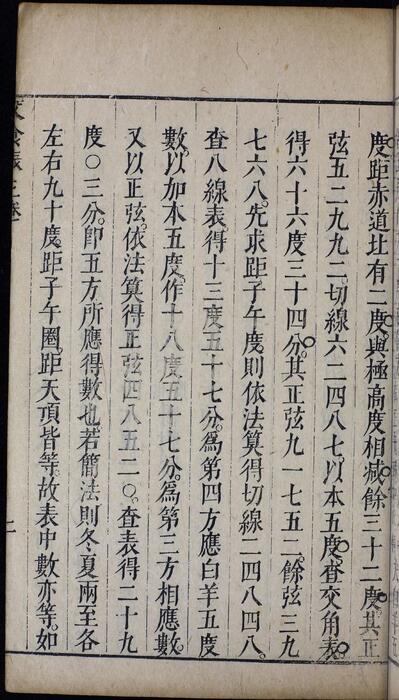 度距赤道北有二度與極高度相減餘三十二度其正
弦五二九九二切線六二四八七以本五度查交角表
得六十六度三十四分其正弦九一七五二餘弦三九
七六八先求距子午度則依法算得切線二四八四八
查八線表得十三度五十七分爲第四方應白羊五度
數以加本五度作十八度五十七分爲第三方相應數
又以正弦依法算得正弦四八五二〇查表得二十九
度〇三分卽五方所應得數也若簡法則冬夏兩至各
左右九十度距子午圈距天頂皆等故表中數亦等如
交食表三卷